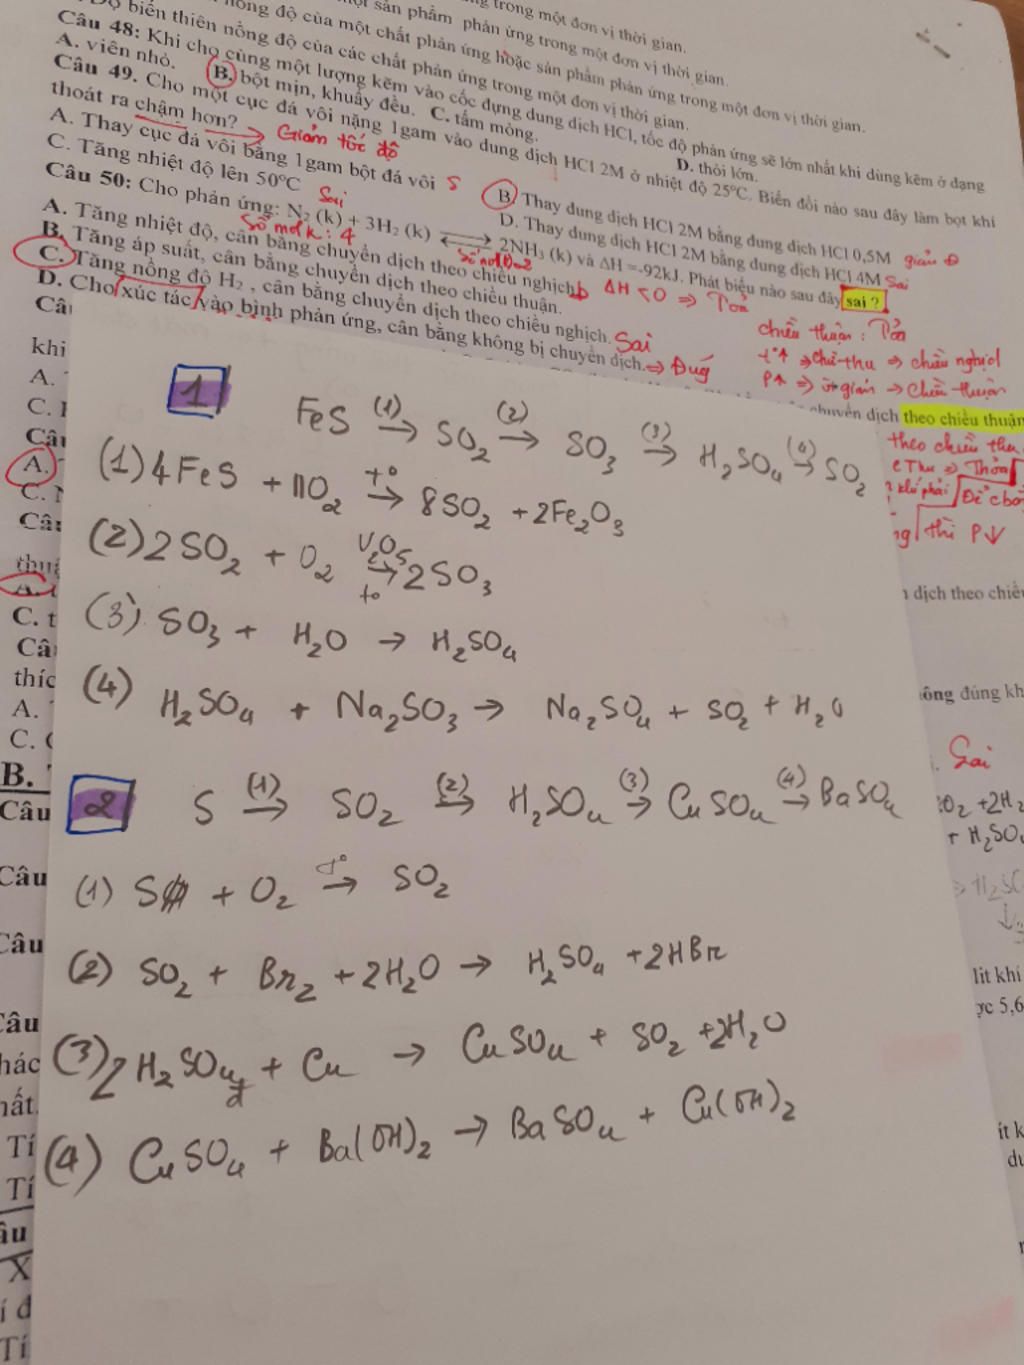 trong một đơn vị thời gian.
sản phẩm phản ứng trong một đơn vị thời gian.
nồng độ của một chất phản ứng hoặc sản phẩm phản ứng trong một đơn vị thời gian.
biến thiên nồng độ của các chất phản ứng trong một đơn vị thời gian.
Câu 48: Khi cho cùng một lượng kẽm vào cốc đựng dung dịch HCl, tốc độ phản ứng sẽ lớn nhất khi dùng kẽm ở dạng
A. viên nhỏ. B. bột mịn, khuấy đều. C. tấm mỏng. D. thỏi lớn.
Câu 49. Cho một cục đá vôi nặng 1gam vào dung dịch HCl 2M ở nhiệt độ 25°C. Biến đổi nào sau đây làm bọt khí
thoát ra chậm hơn? → Giảm tốc độ
A. Thay cục đá vôi bằng 1gam bột đá vôi S B. Thay dung dịch HCl 2M bằng dung dịch HCl 0,5M
C. Tăng nhiệt độ lên 50°C Sai D. Thay dung dịch HCl 2M bằng dung dịch HCl 4M Sai
Câu 50: Cho phản ứng: N₂ (k) + 3H₂ (k) ⇌ 2NH₃ (k) và ΔH = -92kJ. Phát biểu nào sau đây sai ?
Số mol k: 4
A. Tăng nhiệt độ, cân bằng chuyển dịch theo chiều nghịch. ΔH < 0 ⇒ Tỏa
B. Tăng áp suất, cân bằng chuyển dịch theo chiều thuận. chiều thuận: Tỏa
C. Tăng nồng độ H₂ , cân bằng chuyển dịch theo chiều nghịch. Sai
D. Cho xúc tác vào bình phản ứng, cân bằng không bị chuyển dịch. ⇒ Đúg
t°↑ ⇒ chiều thu ⇒ chiều nghịch
P↑ ⇒ ứ gián → chiều thuận
chuyển dịch theo chiều thuận
theo chiều thu
Câ
khi
A.
C.
Câ
A.
C.
1 FeS (1)→ SO₂ (2)→ SO₃ (3)→ H₂SO₄ (4)→ SO₂
(1) 4FeS + 11O₂ t°→ 8SO₂ + 2Fe₂O₃
(2) 2SO₂ + O₂ V₂O₅→t° 2SO₃
(3) SO₃ + H₂O → H₂SO₄
(4) H₂SO₄ + Na₂SO₃ → Na₂SO₄ + SO₂ + H₂O
2 S (1)→ SO₂ (2)→ H₂SO₄ (3)→ CuSO₄ (4)→ BaSO₄
(1) S + O₂ t°→ SO₂
(2) SO₂ + Br₂ + 2H₂O → H₂SO₄ + 2HBr
(3) 2H₂SO₄đ + Cu → CuSO₄ + SO₂ + 2H₂O
(4) CuSO₄ + Ba(OH)₂ → BaSO₄ + Cu(OH)₂
thì P↓
dịch theo chiều
C. t
Câ
thíc
A.
C.
ông đúng kh
Sai
B.
Câu
Câu
Câu
lít khí
ợc 5,6
Câu
hác
hất
Tí
Tí
âu
X
í đ
Tí